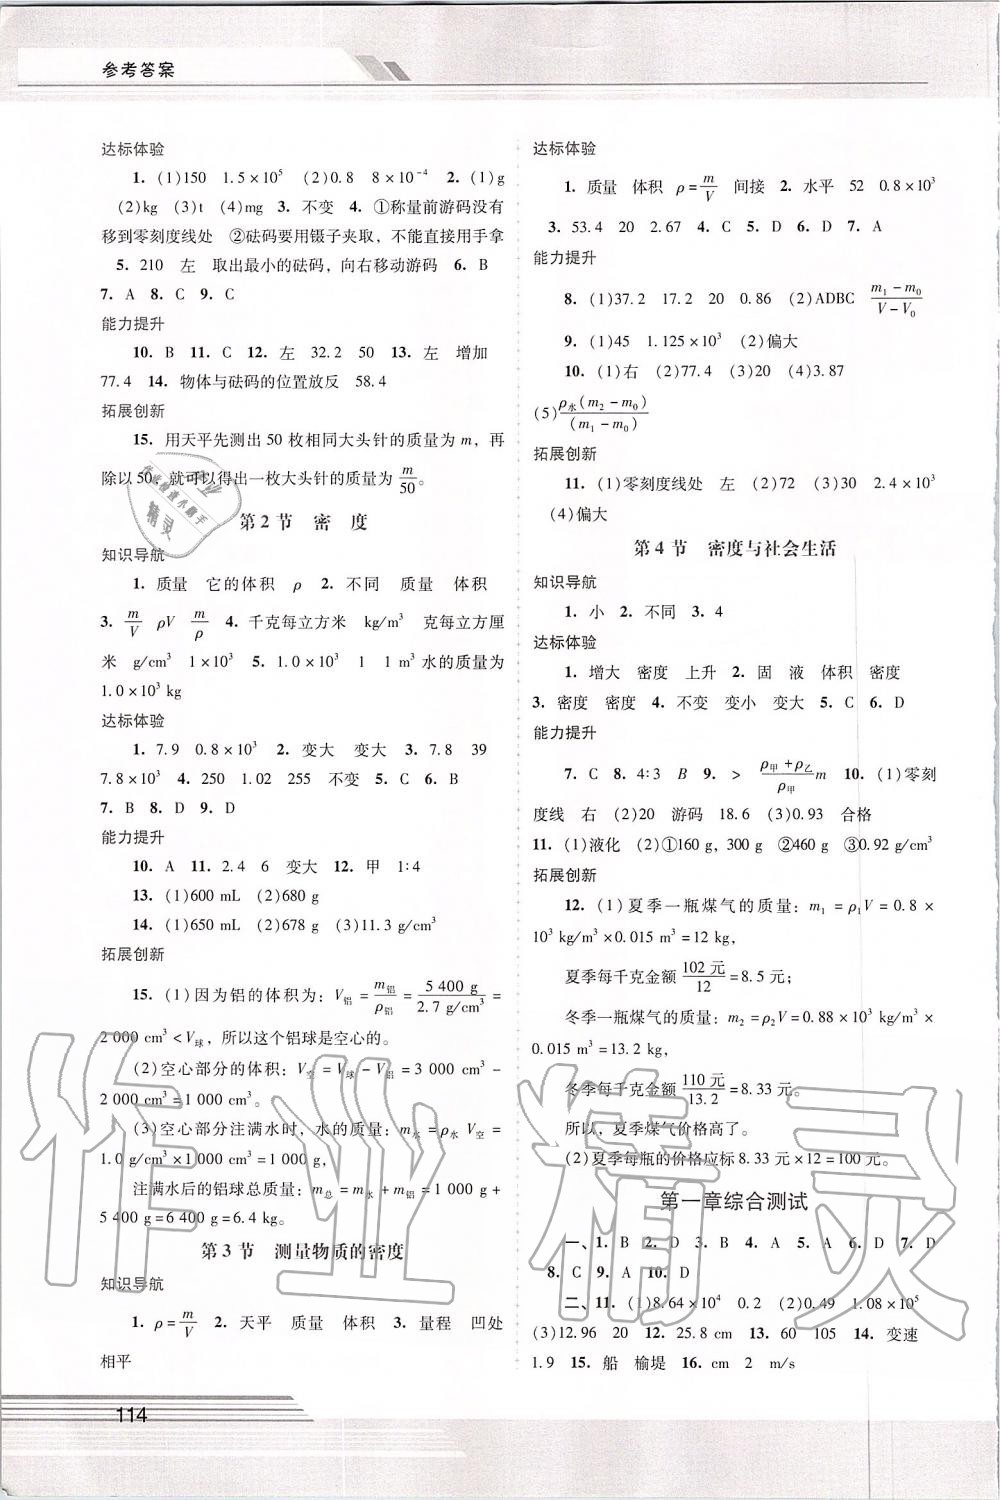 参考答案
达标体验
1. (1)150 1.5×10⁵ (2)0.8 8×10⁻⁴ 2. (1)g
(2)kg (3)t (4)mg 3. 不变 4. ①称量前游码没有
移到零刻度线处 ②砝码要用镊子夹取，不能直接用手拿
5. 210 左 取出最小的砝码，向右移动游码 6. B
7. A 8. C 9. C
能力提升
10. B 11. C 12. 左 32.2 50 13. 左 增加
77.4 14. 物体与砝码的位置放反 58.4
拓展创新
15. 用天平先测出 50 枚相同大头针的质量为 m，再
除以 50，就可以得出一枚大头针的质量为 m/50。
第 2 节 密 度
知识导航
1. 质量 它的体积 ρ 2. 不同 质量 体积
3. m/V ρV m/ρ 4. 千克每立方米 kg/m³ 克每立方厘
米 g/cm³ 1×10³ 5. 1.0×10³ 1 1 m³ 水的质量为
1.0×10³ kg
达标体验
1. 7.9 0.8×10³ 2. 变大 变大 3. 7.8 39
7.8×10³ 4. 250 1.02 255 不变 5. C 6. B
7. B 8. D 9. D
能力提升
10. A 11. 2.4 6 变大 12. 甲 1∶4
13. (1)600 mL (2)680 g
14. (1)650 mL (2)678 g (3)11.3 g/cm³
拓展创新
15. (1)因为铝的体积为：V铝=m铝/ρ铝=5 400 g/2.7 g/cm³=
2 000 cm³<V球，所以这个铝球是空心的。
(2)空心部分的体积：V空=V球-V铝=3 000 cm³-
2 000 cm³=1 000 cm³。
(3)空心部分注满水时，水的质量：m水=ρ水 V空=
1.0 g/cm³×1 000 cm³=1 000 g，
注满水后的铝球总质量：m总=m水+m铝=1 000 g+
5 400 g=6 400 g=6.4 kg。
第 3 节 测量物质的密度
知识导航
1. ρ=m/V 2. 天平 质量 体积 3. 量程 凹处
相平
114
达标体验
1. 质量 体积 ρ=m/V 间接 2. 水平 52 0.8×10³
3. 53.4 20 2.67 4. C 5. D 6. D 7. A
能力提升
8. (1)37.2 17.2 20 0.86 (2)ADBC (m₁-m₀)/(V-V₀)
9. (1)45 1.125×10³ (2)偏大
10. (1)右 (2)77.4 (3)20 (4)3.87
(5)ρ水(m₂-m₀)/(m₁-m₀)
拓展创新
11. (1)零刻度线处 左 (2)72 (3)30 2.4×10³
(4)偏大
第 4 节 密度与社会生活
知识导航
1. 小 2. 不同 3. 4
达标体验
1. 增大 密度 上升 2. 固 液 体积 密度
3. 密度 密度 4. 不变 变小 变大 5. C 6. D
能力提升
7. C 8. 4∶3 B 9. > (ρ甲+ρ乙)/ρ甲 m 10. (1)零刻
度线 右 (2)20 游码 18.6 (3)0.93 合格
11. (1)液化 (2)①160 g，300 g ②460 g ③0.92 g/cm³
拓展创新
12. (1)夏季一瓶煤气的质量：m₁=ρ₁V=0.8×
10³ kg/m³×0.015 m³=12 kg，
夏季每千克金额 102 元/12=8.5 元；
冬季一瓶煤气的质量：m₂=ρ₂V=0.88×10³ kg/m³×
0.015 m³=13.2 kg，
冬季每千克金额 110 元/13.2=8.33 元。
所以，夏季煤气价格高了。
(2)夏季每瓶的价格应标 8.33 元×12=100 元。
第一章综合测试
一、1. B 2. D 3. B 4. A 5. A 6. D 7. D
8. C 9. A 10. D
二、11. (1)8.64×10⁴ 0.2 (2)0.49 1.08×10⁵
(3)12.96 20 12. 25.8 cm 13. 60 105 14. 变速
1.9 15. 船 榆堤 16. cm 2 m/s
作业精灵